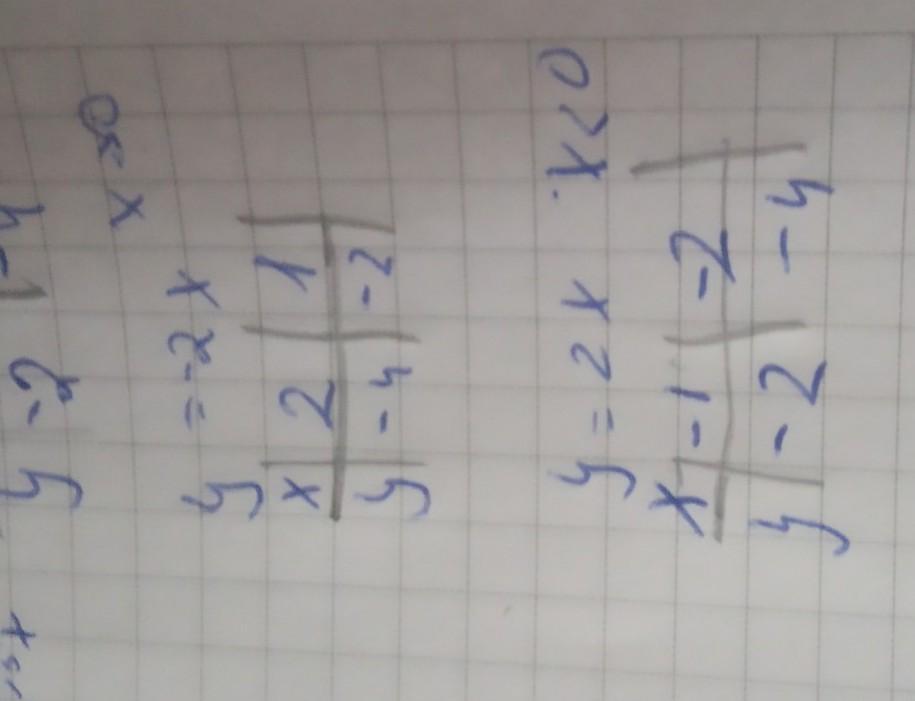 y = -2x
x 2 1
y -4 -2
y = 2x x<0
x -1 -2
y -2 -4